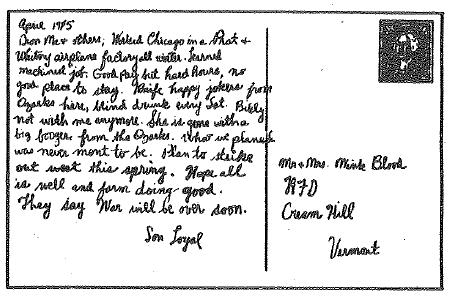 April 1945
Dear Ma & others; Worked Chicago in a Prat &
Whitney airplane factory all winter. Learned
machined job. Good pay but hard hours, no
good place to stay. Knife happy jokers from
Ozarks here, blind drunk every Sat. Billy
not with me anymore. She is gone with a
big booger from the Ozarks. What we planned
was never ment to be. Plan to strike
out west this spring. Hope all
is well and farm doing good.
They say War will be over soon.
Son Loyal
Mr & Mrs. Mink Blood
RFD
Cream Hill
Vermont